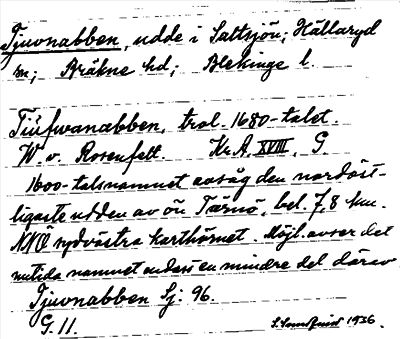 Tjuvnabben, udde i Saltsjön; Hällaryd
sn; Bräkne hd; Blekinge l.
Tiufwanabben, trol. 1680-talet.
W. v. Rosenfelt. Kr.A. XVIII, G
1600-talsnamnet avsåg den nordöst-
ligaste udden av ön Tärnö, bel. 7,8 km.
NNÖ sydvästra karthörnet. Möjl. avser det
nutida namnet endast en mindre del därav
Tjuvnabben Sj: 96.
G. 11. S. Sundquist 1936.